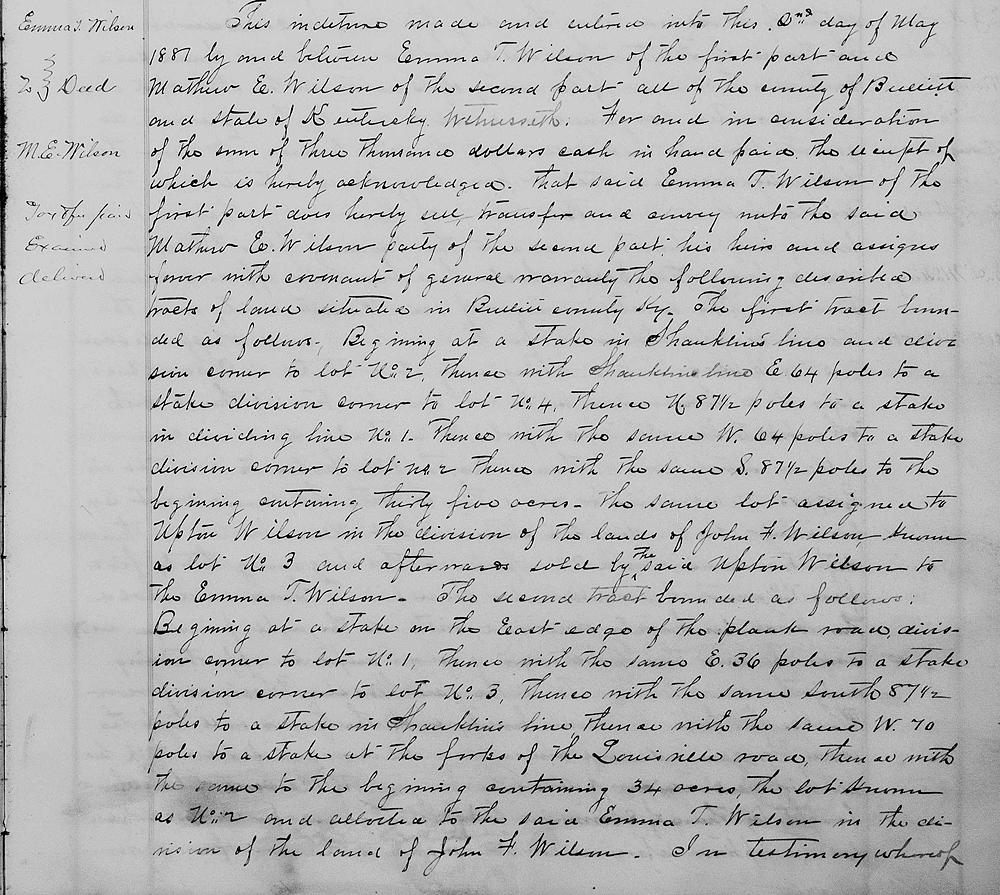 Emma T. Wilson
To } Deed
M. E. Wilson
Tax & fee paid
Exained
delivered
This indeture made and entired into this 2nd day of May
1887 by and between Emma T. Wilson of the first part and
Mathew E. Wilson of the second part all of the county of Bullitt
and state of Kentucky. Witnesseth. For and in consideration
of the sum of three thousand dollars cash in hand paid. the receipt of
which is hereby acknowledged. that said Emma T. Wilson of the
first part does hereby sell, transfer and convey unto the said
Mathew E. Wilson party of the second part, his heirs and assigns
forever with covenant of general warranty the following described
tracts of land situated in Bullitt county Ky. The first tract boun-
ded as follows., Begining at a stake in Shanklin's line and divi
sion corner to lot No. 2, thence with Shanklins line E. 64 poles to a
stake division corner to lot No. 4, thence N 87 1/2 poles to a stake
in dividing line No. 1. thence with the same W. 64 poles to a stake
division corner to lot no. 2 thence with the same S. 87 1/2 poles to the
begining containing thirty five acres. the same lot assigned to
Upton Wilson in the division of the lands of John F. Wilson, known
as lot No. 3 and afterwards sold by the said Upton Wilson to
the Emma T. Wilson. The second tract bounded as follows:
Begining at a stake on the East edge of the plank road, divis-
ion corner to lot No. 1, thence with the same E. 36 poles to a stake
division corner to lot No. 3, thence with the same South 87 1/2
poles to a stake in Shanklin's line, thence with the same W. 70
poles to a stake at the forks of the Louisville road, thence with
the same to the begining containing 34 acres, the lot known
as No. 2 and allotted to the said Emma T. Wilson in the di-
vision of the land of John F. Wilson. In testimony whereof